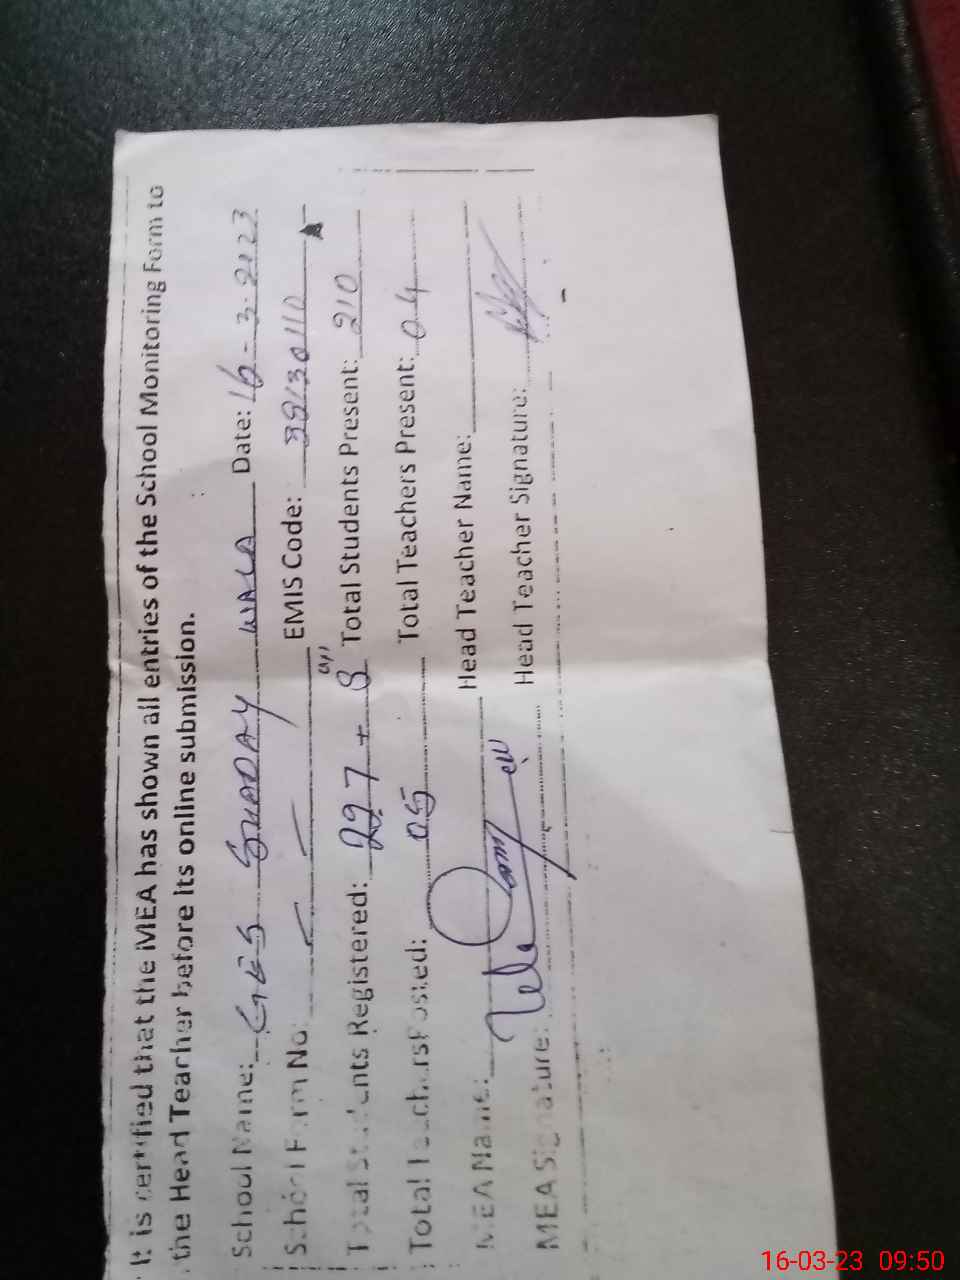 It is certified that the MEA has shown all entries of the School Monitoring Form to
the Head Teacher before its online submission.
School Name: GES SHADAY WALA Date: 16-3-2023
School Form No: EMIS Code: 38130110
Total Students Registered: 297 + 8 Total Students Present: 210
Total Teachers Posted: 05 Total Teachers Present: 04
MEA Name: Head Teacher Name:
MEA Signature: Head Teacher Signature:
16-03-23 09:50